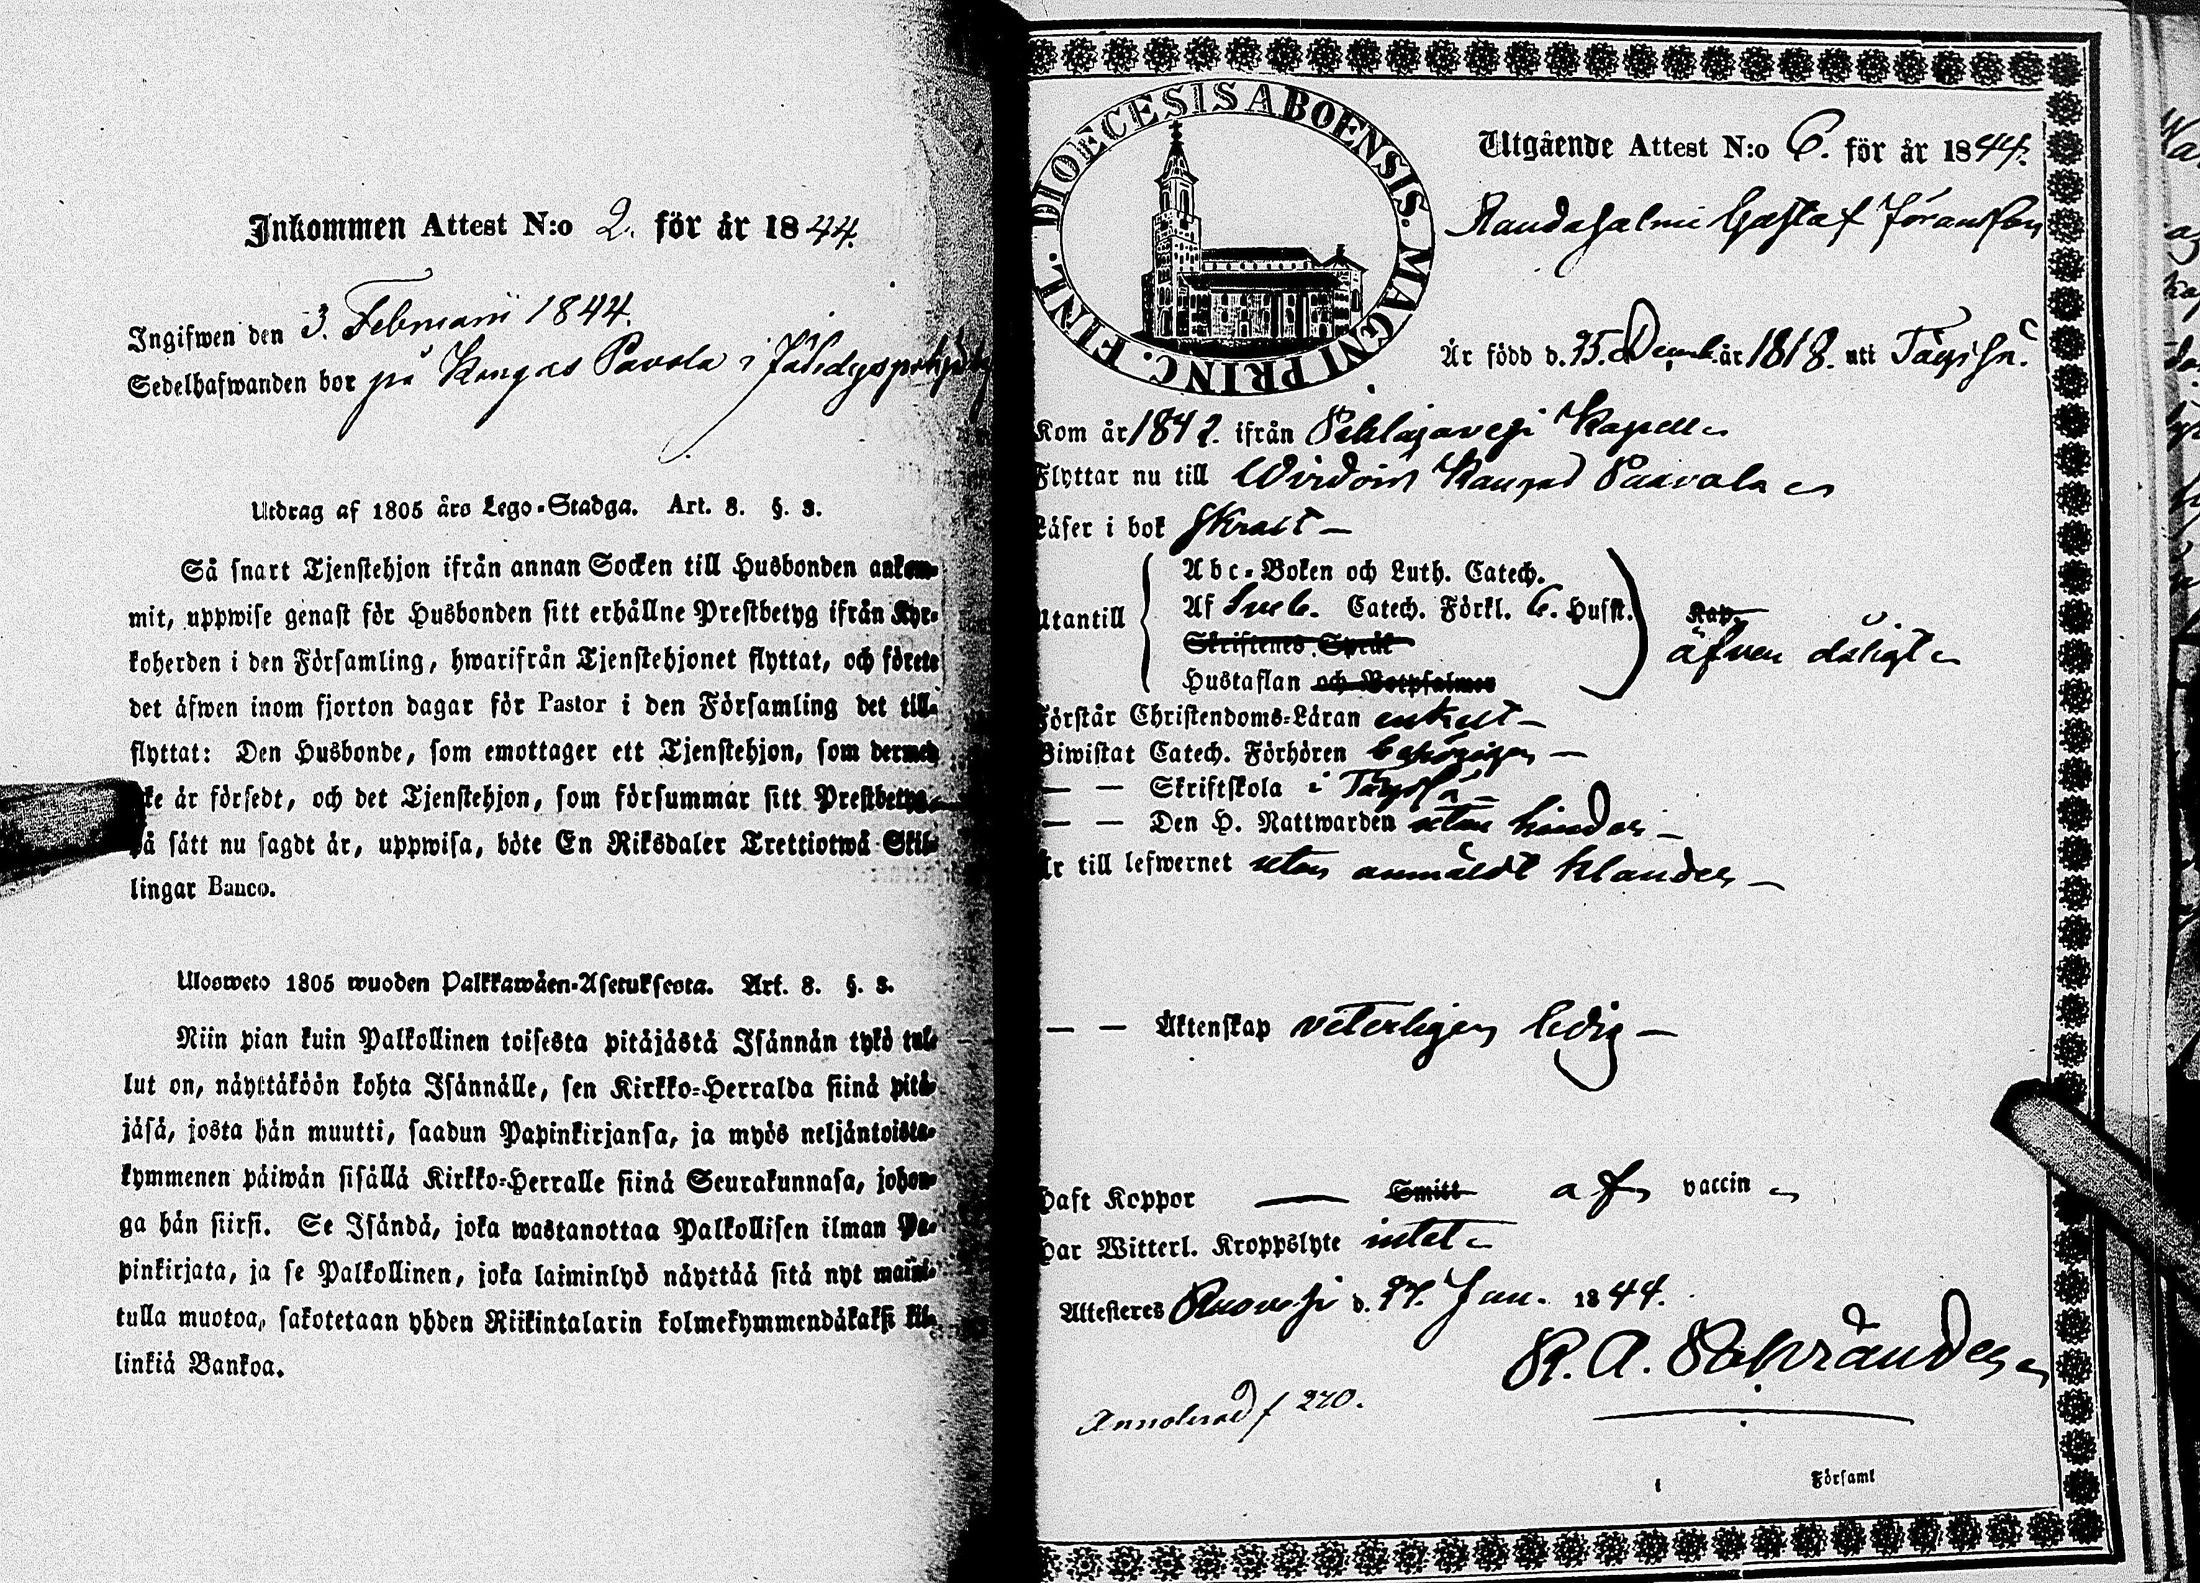 Inkommen Attest N:o 2. för år 1844.
Ingifwen den 3. Februarii 1844.
Sedelhafwanden bor på Kangas Pavola i Jähdyspohja
Utdrag af 1805 års Lego-Stadga. Art. 8. §. 3.
Så snart Tjenstehjon ifrån annan Socken till Husbonden ankom-
mit, uppwise genast för Husbonden sitt erhållne Prestbetyg ifrån Kyr-
koherden i den Församling, hwarifrån Tjenstehjonet flyttat, och förete
det äfwen inom fjorton dagar för Pastor i den Församling det till-
flyttat: Den Husbonde, som emottager ett Tjenstehjon, som dermed
icke är försedt, och det Tjenstehjon, som försummar sitt Prestbetyg,
på sätt nu sagdt är, uppwisa, böte En Riksdaler Trettiotwå Skil-
lingar Banco.
Ulosweto 1805 wuoden Palkkawäen-Asetuksesta. Art. 8. §. 3.
Niin pian kuin Palkollinen toisesta pitäjästä Isännän tykö tul-
lut on, näyttäköön kohta Isännälle, sen Kirkko-Herralda siinä pitä-
jäsä, josta hän muutti, saadun Papinkirjansa, ja myös neljäntoista-
kymmenen päiwän sisällä Kirkko-Herralle siinä Seurakunnasa, johon-
ga hän siirsi. Se Isändä, joka wastanottaa Palkollisen ilman Pa-
pinkirjata, ja se Palkollinen, joka laiminlyö näyttää sitä nyt maini-
tulla muotoa, sakotetaan yhden Riikintalarin kolmekymmendäkaksi kil-
linkiä Bankoa.
FINL. DIOECESIS ABOENSIS. MAGNI PRINC.
Utgående Attest N:o 6. för år 1844.
Raudasalmi Gustaf Göransson
Är född d. 25. Decemb. år 1818. uti Töysä.
Kom år 1842. ifrån Pihlajavesi Kapell
Flyttar nu till Wirdois Kangas Paavola
Läser i bok skralt —
Abc-Boken och Luth. Catech.
Utantill Af Sveb. Catech. Förkl. 6. Hufst. Kap.
Skriftenes Språk äfven dåligt
Hustaflan och Botpsalmer
Förstår Christendoms-Läran enkelt —
Biwistat Catech. Förhören behörigen —
— — Skriftskola i Töysä —
— — Den H. Nattwarden utan hinder —
Är till lefwernet utan anmäldt klander —
— — Äktenskap veterligen ledig —
Haft Koppor — Smitt af vaccin
Har Witterl. Kroppslyte intet
Attesteres Ruovesi d. 27. Jan. 1844.
Annoterad f 270.
i Församl